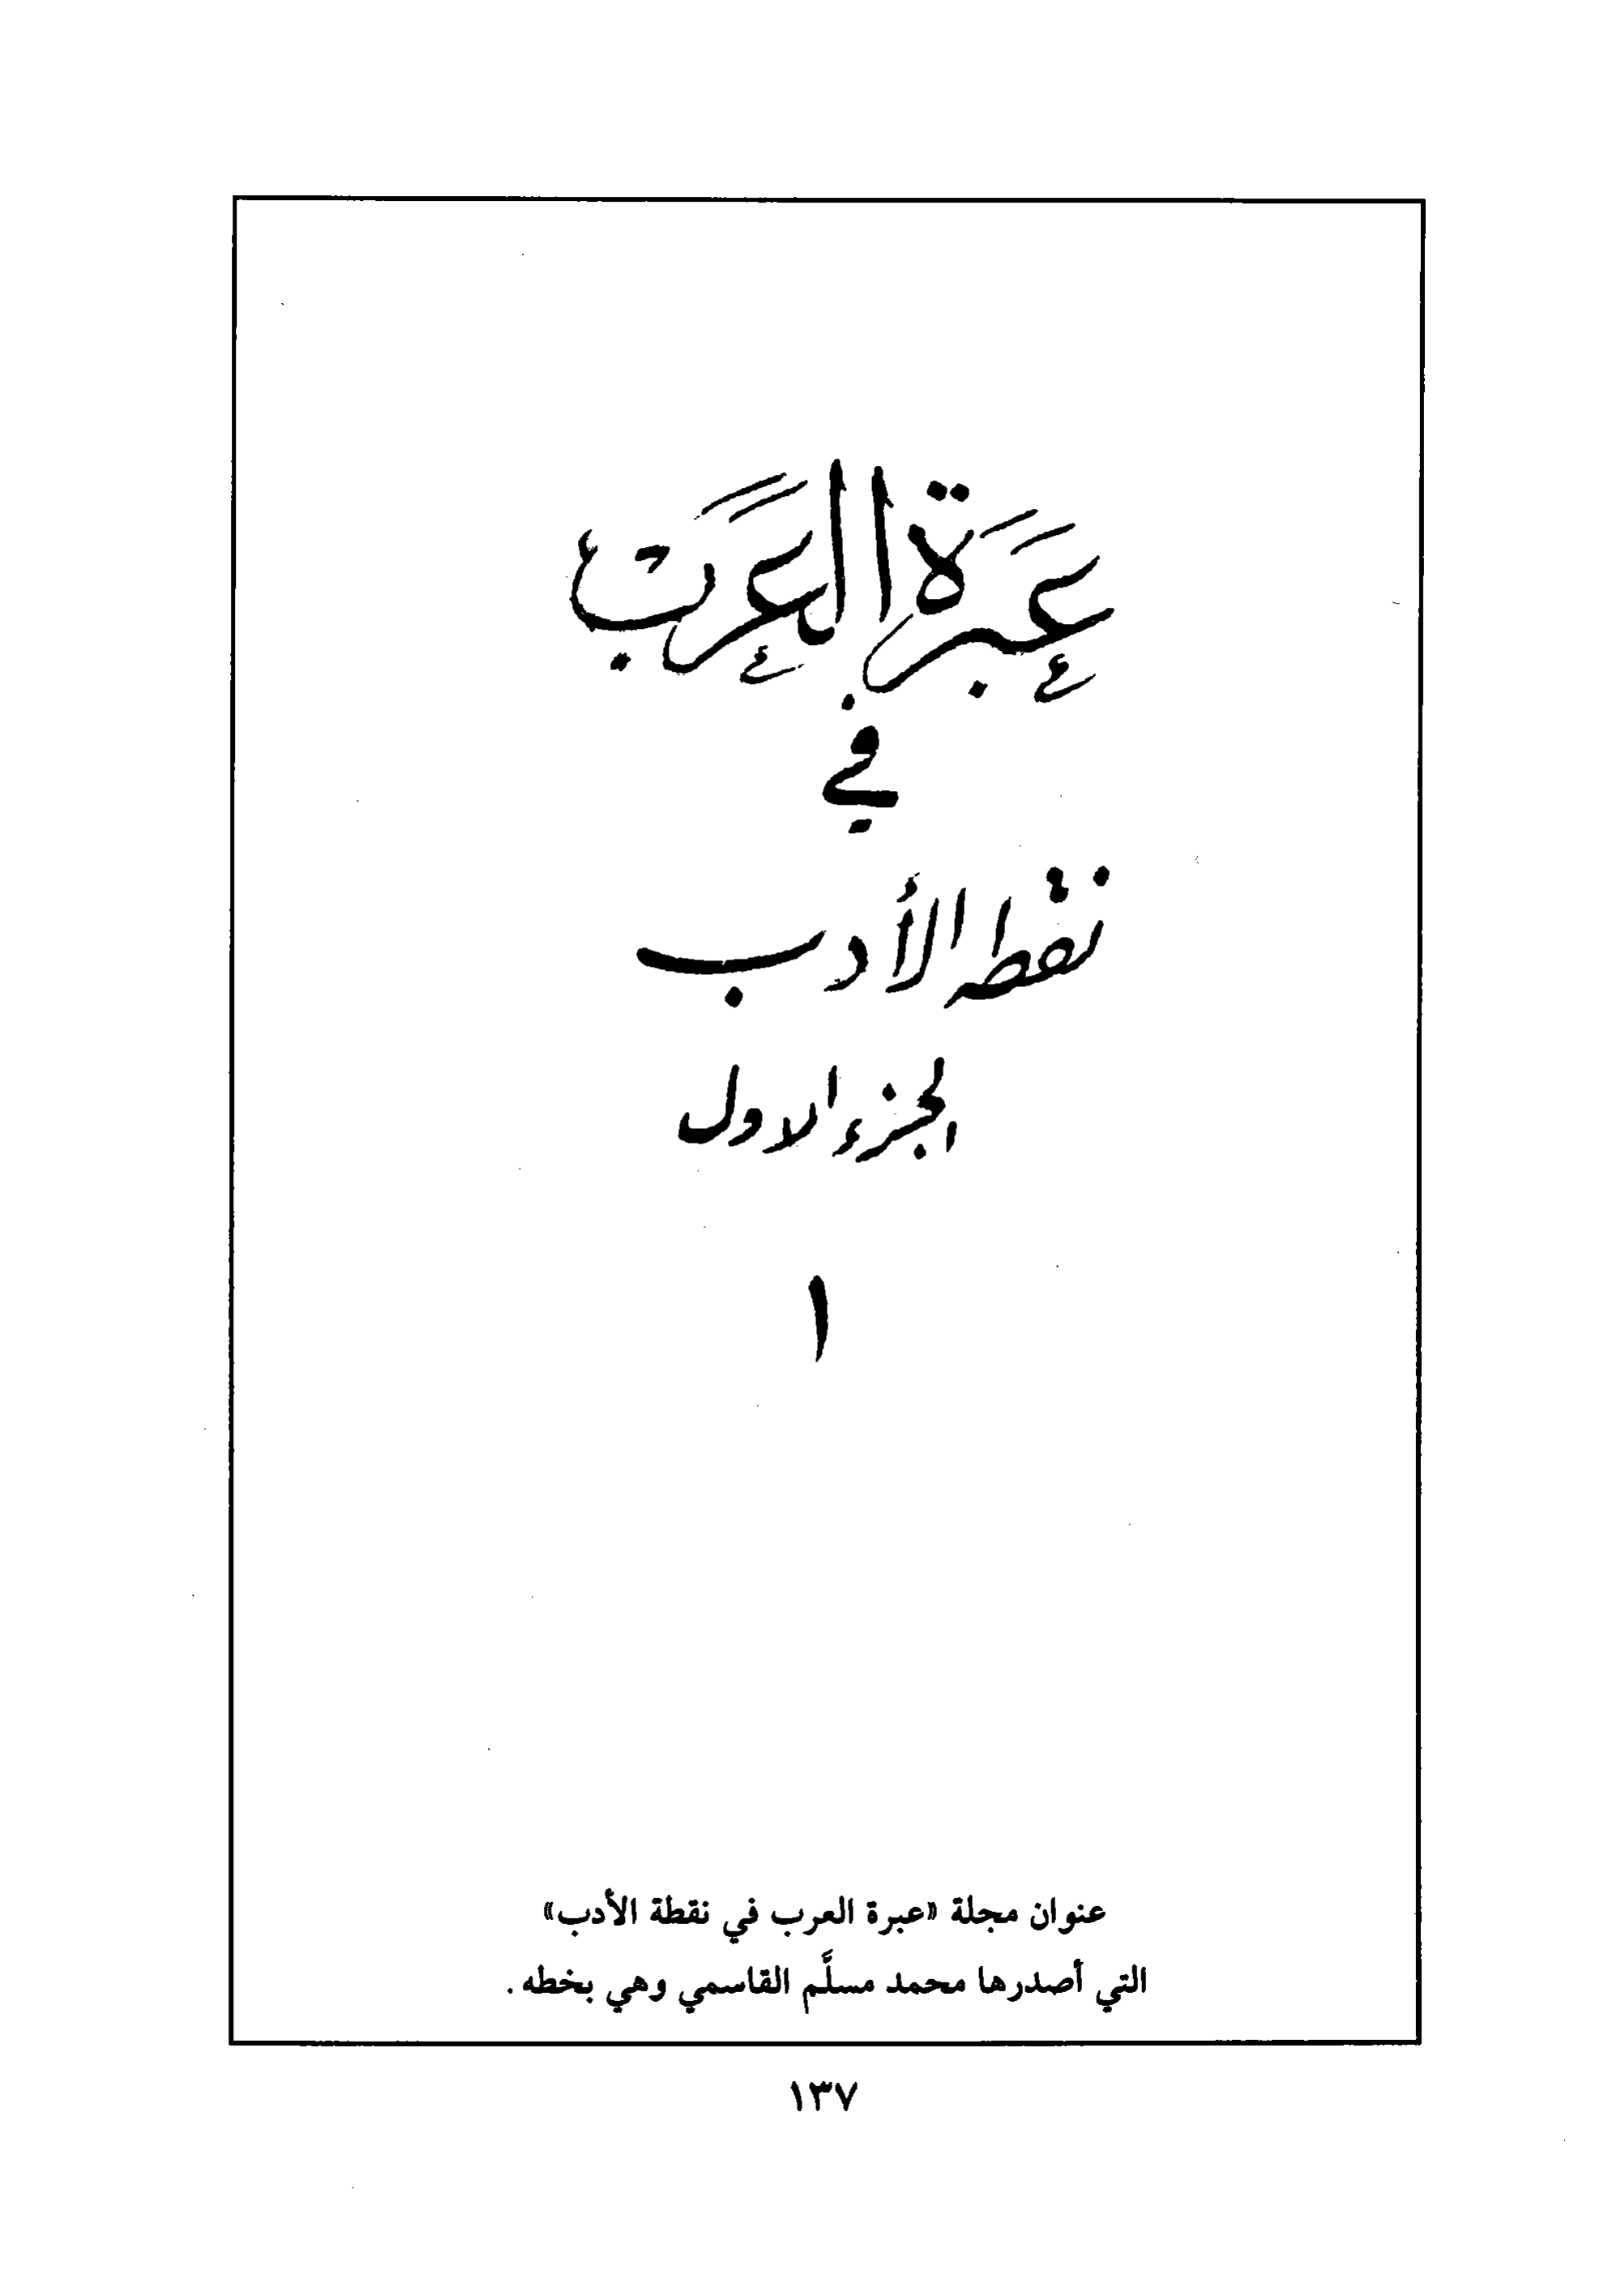 عبرة العرب
في
نقطه الأدب
الجزء الاول
١
عنوان مجلة «عبرة العرب في نقطة الأدب»
التي أصدرها محمد مسلَّم القاسمي وهي بخطه .
١٣٧